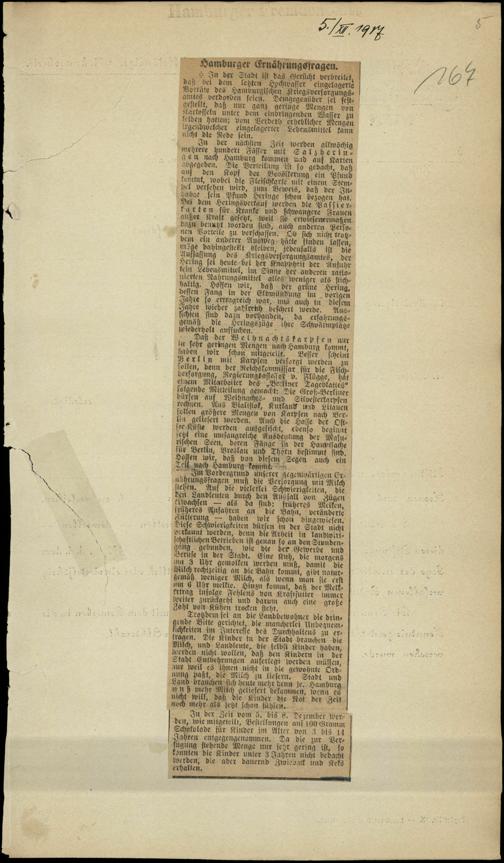 5./XII. 1917
5
167
Hamburger Ernährungsfragen.
§ In der Stadt ist das Gerücht verbreitet,
daß bei dem letzten Hochwasser eingelagerte
Vorräte des Hamburgischen Kriegsversorgungs-
amtes verdorben seien. Demgegenüber sei fest-
gestellt, daß nur ganz geringe Mengen von
Kartoffeln unter dem eindringenden Wasser zu
leiden hatten; vom Verderb erheblicher Mengen
irgendwelcher eingelagerter Lebensmittel kann
nicht die Rede sein.
In der nächsten Zeit werden allwöchig
mehrere hundert Fässer mit Salzherin-
gen nach Hamburg kommen und auf Karten
abgegeben. Die Verteilung ist so gedacht, daß
auf den Kopf der Bevölkerung ein Pfund
kommt, wobei die Fleischkarte mit einem Stem-
pel versehen wird, zum Beweis, daß der In-
haber sein Pfund Heringe schon bezogen hat.
Bei dem Heringsverkauf werden die Passier-
karten für Kranke und schwangere Frauen
außer Kraft gesetzt, weil sie erwiesenermaßen
dazu benutzt worden sind, auch anderen Perso-
nen Vorteile zu verschaffen. Ob sich nicht trotz-
dem ein anderer Ausweg hätte finden lassen,
möge dahingestellt bleiben, jedenfalls ist die
Auffassung des Kriegsversorgungsamtes, der
Hering sei heute bei der Knappheit der Zufuhr
kein Lebensmittel, im Sinne der anderen ratio-
nierten Nahrungsmittel alles weniger als stich-
haltig. Hoffen wir, daß der grüne Hering,
dessen Fang in der Elbmündung im vorigen
Jahre so ertragreich war, uns auch in diesem
Jahre wieder zahlreich beschert werde. Aus-
sichten sind dazu vorhanden, da erfahrungs-
gemäß die Heringszüge ihre Schwarmplätze
wiederholt aufsuchen.
Daß der Weihnachtskarpfen nur
in sehr geringen Mengen nach Hamburg kommt,
haben wir schon mitgeteilt. Besser scheint
Berlin mit Karpfen versorgt werden zu
sollen, denn der Reichskommissar für die Fisch-
versorgung, Regierungsassessor v. Flügge, hat
einem Mitarbeiter des „Berliner Tageblattes“
folgende Mitteilung gemacht: Die Groß-Berliner
dürfen auf Weihnachts- und Silvesterkarpfen
rechnen. Aus Bialistok, Kurland und Litauen
sollen größere Mengen von Karpfen nach Ber-
lin geliefert werden. Auch die Haffe der Ost-
see-Küste werden ausgefischt, ebenso beginnt
jetzt eine umfangreiche Ausbeutung der Masu-
rischen Seen, deren Fänge in der Hauptsache
für Berlin, Breslau und Thorn bestimmt sind.
Hoffen wir, daß von diesem Segen auch ein
Teil nach Hamburg kommt.
Im Vordergrund unserer gegenwärtigen Er-
nährungsfragen muß die Versorgung mit Milch
stehen. Auf die vielerlei Schwierigkeiten, die
den Landleuten durch den Ausfall von Zügen
erwachsen — als da sind: früheres Melken,
früheres Anfahren an die Bahn, veränderte
Fütterung — haben wir schon hingewiesen.
Diese Schwierigkeiten dürfen in der Stadt nicht
verkannt werden, denn die Arbeit in landwirt-
schaftlichen Betrieben ist genau so an den Stunden-
gang gebunden, wie die der Gewerbe und
Berufe in der Stadt. Eine Kuh, die morgens
um 3 Uhr gemolken werden muß, damit die
Milch rechtzeitig an die Bahn kommt, gibt natur-
gemäß weniger Milch, als wenn man sie erst
um 6 Uhr melkte. Hinzu kommt, daß der Melk-
ertrag infolge Fehlens von Kraftfutter immer
weiter zurückgeht und darum auch eine große
Zahl von Kühen trocken steht.
Trotzdem sei an die Landbewohner die drin-
gende Bitte gerichtet, die mancherlei Unbequem-
lichkeiten im Interesse des Durchhaltens zu er-
tragen. Die Kinder in der Stadt brauchen die
Milch, und Landleute, die selbst Kinder haben,
werden nicht wollen, daß den Kindern in der
Stadt Entbehrungen auferlegt werden müssen,
nur weil es ihnen nicht in die gewohnte Ord-
nung paßt, die Milch zu liefern. Stadt und
Land brauchen sich heute mehr denn je. Hamburg
muß mehr Milch geliefert bekommen, wenn es
nicht will, daß die Kinder die Not der Zeit
noch mehr als jetzt schon fühlen.
In der Zeit vom 5. bis 8. Dezember wer-
den, wie mitgeteilt, Bestellungen auf 100 Gramm
Schokolade für Kinder im Alter von 3 bis 14
Jahren entgegengenommen. Da die zur Ver-
fügung stehende Menge nur sehr gering ist, so
konnten die Kinder unter 3 Jahren nicht bedacht
werden, die aber dauernd Zwieback und Keks
erhalten.